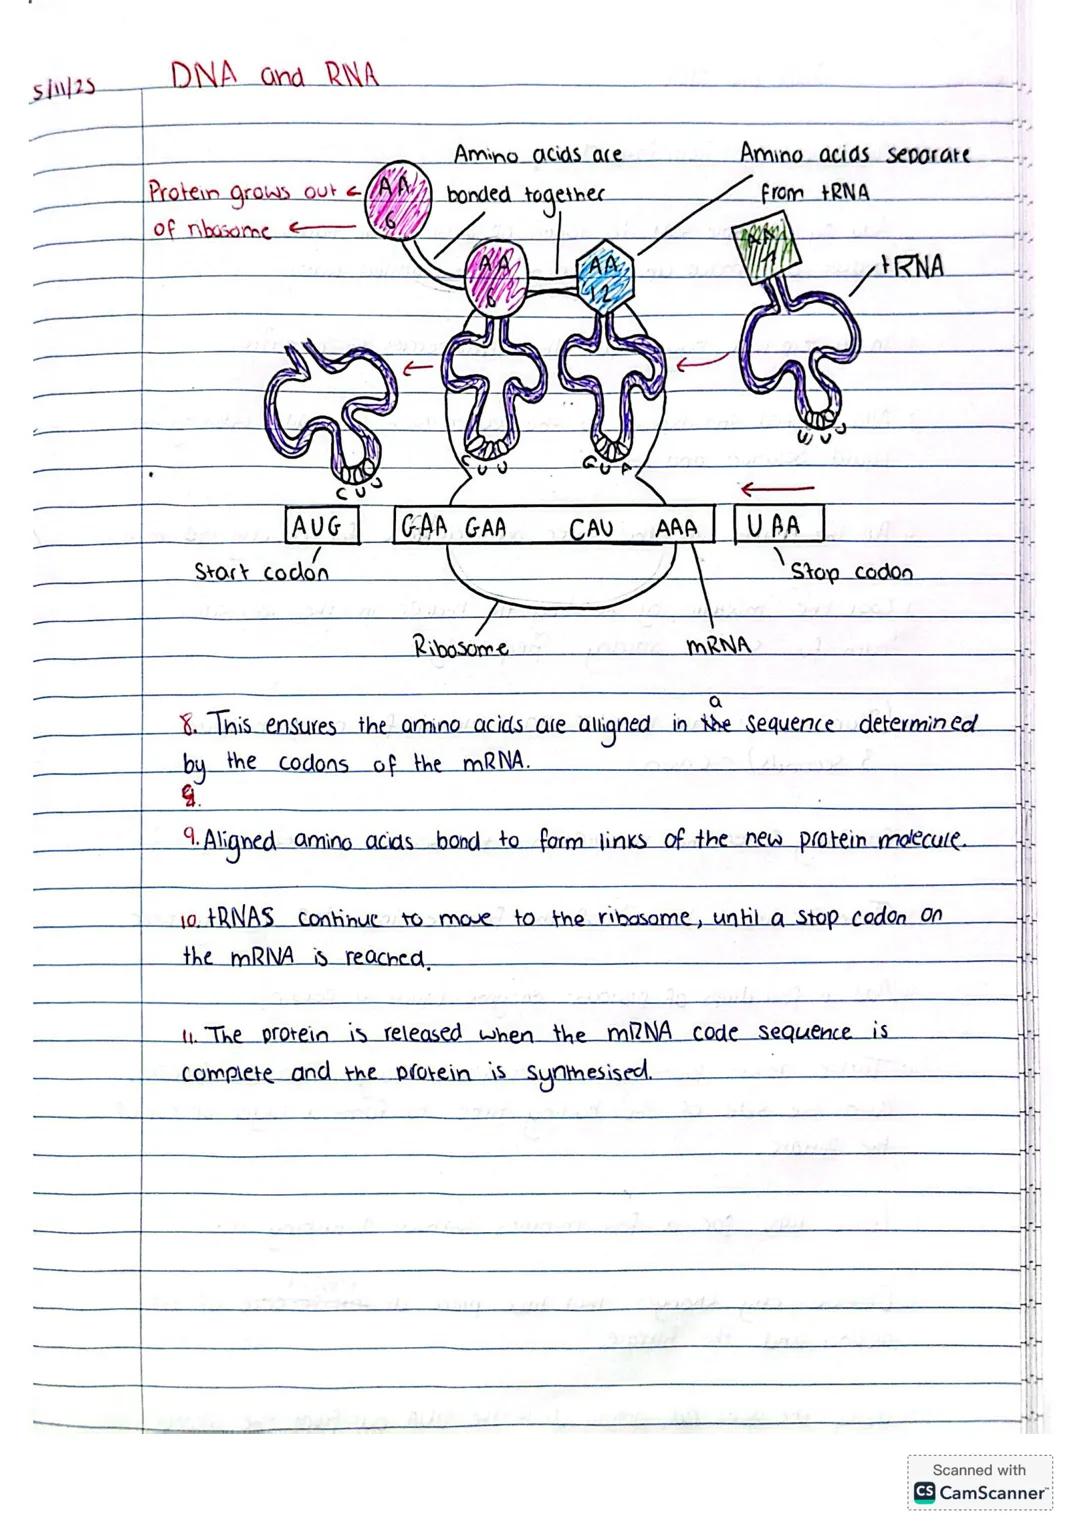 5/11/25
DNA and RNA
Amino acids are
bonded together
Amino acids separate
from tRNA
Protein grows out
of ribosome
AA
6
AA
6
AA
12
tRNA
C U U
C U U
G U A
U U U
AUG
GAA GAA CAU AAA
UAA
Start codon
Stop codon
Ribosome
mRNA
a
8. This ensures the amino acids are alligned in the sequence determined
by the codons of the mRNA.
9.
9. Aligned amino acids bond to form links of the new protein molecule.
10. tRNAS continue to move to the ribosome, until a stop codon on
the mRNA is reached.
11. The protein is released when the mRNA code sequence is
complete and the protein is synthesised.
Scanned with
CS CamScanner